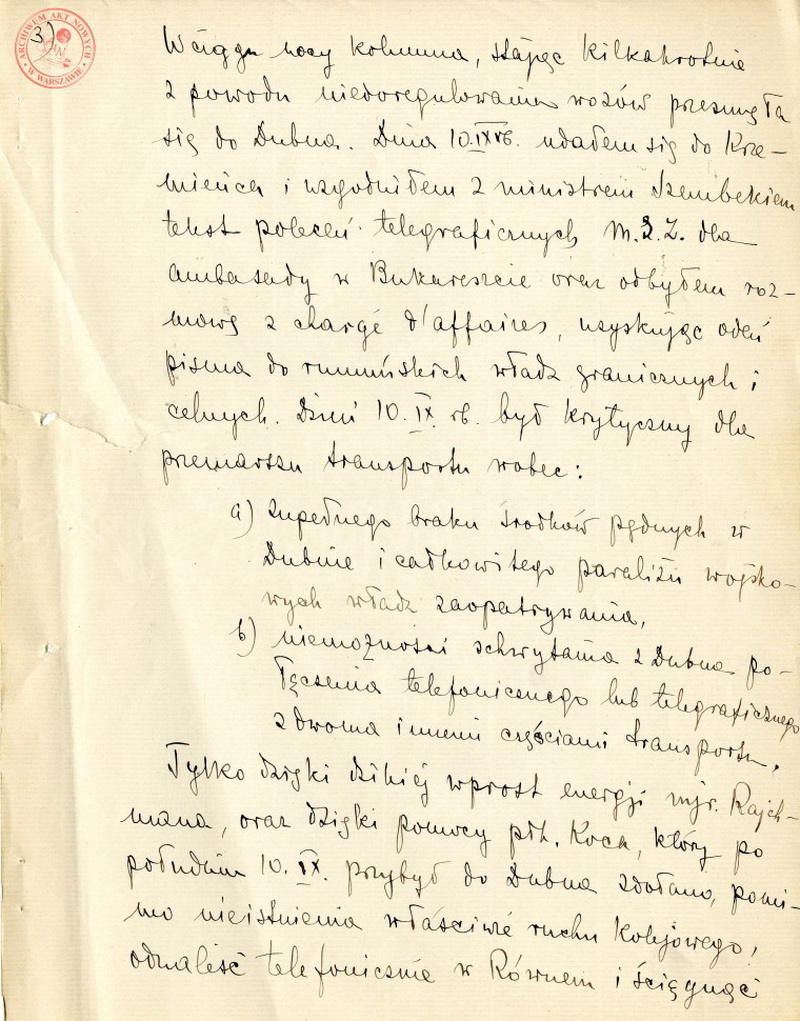 3)
ARCHIWUM AKT NOWYCH
W WARSZAWIE
W ciągu nocy kolumna, stając kilkakrotnie
z powodu niedoregulowania wozów przesunęła
się do Dubna. Dnia 10.IX rb. udałem się do Krze-
mieńca i uzgodniłem z ministrem Szembekiem
tekst poleceń telegraficznych M.S.Z. dla
ambasady w Bukareszcie oraz odbyłem roz-
mowę z chargé d'affaires, uzyskując odeń
pisma do rumuńskich władz granicznych i
celnych. Dzień 10.IX. rb. był krytyczny dla
przemarszu transportu wobec:
a) zupełnego braku środków pędnych w
Dubnie i całkowitego paraliżu wojsko-
wych władz zaopatrywania,
b) niemożności schwytania z Dubna po-
łączenia telefonicznego lub telegraficznego
z dwoma innemi częściami transportu.
Tylko dzięki dzikiej wprost energji mjr. Rajch-
mana, oraz dzięki pomocy płk. Koca, który po
południu 10.IX. przybył do Dubna zdołano, pomi-
mo nieistnienia właściwie ruchu kolejowego,
odnaleść telefonicznie w Równem i ściągnąć